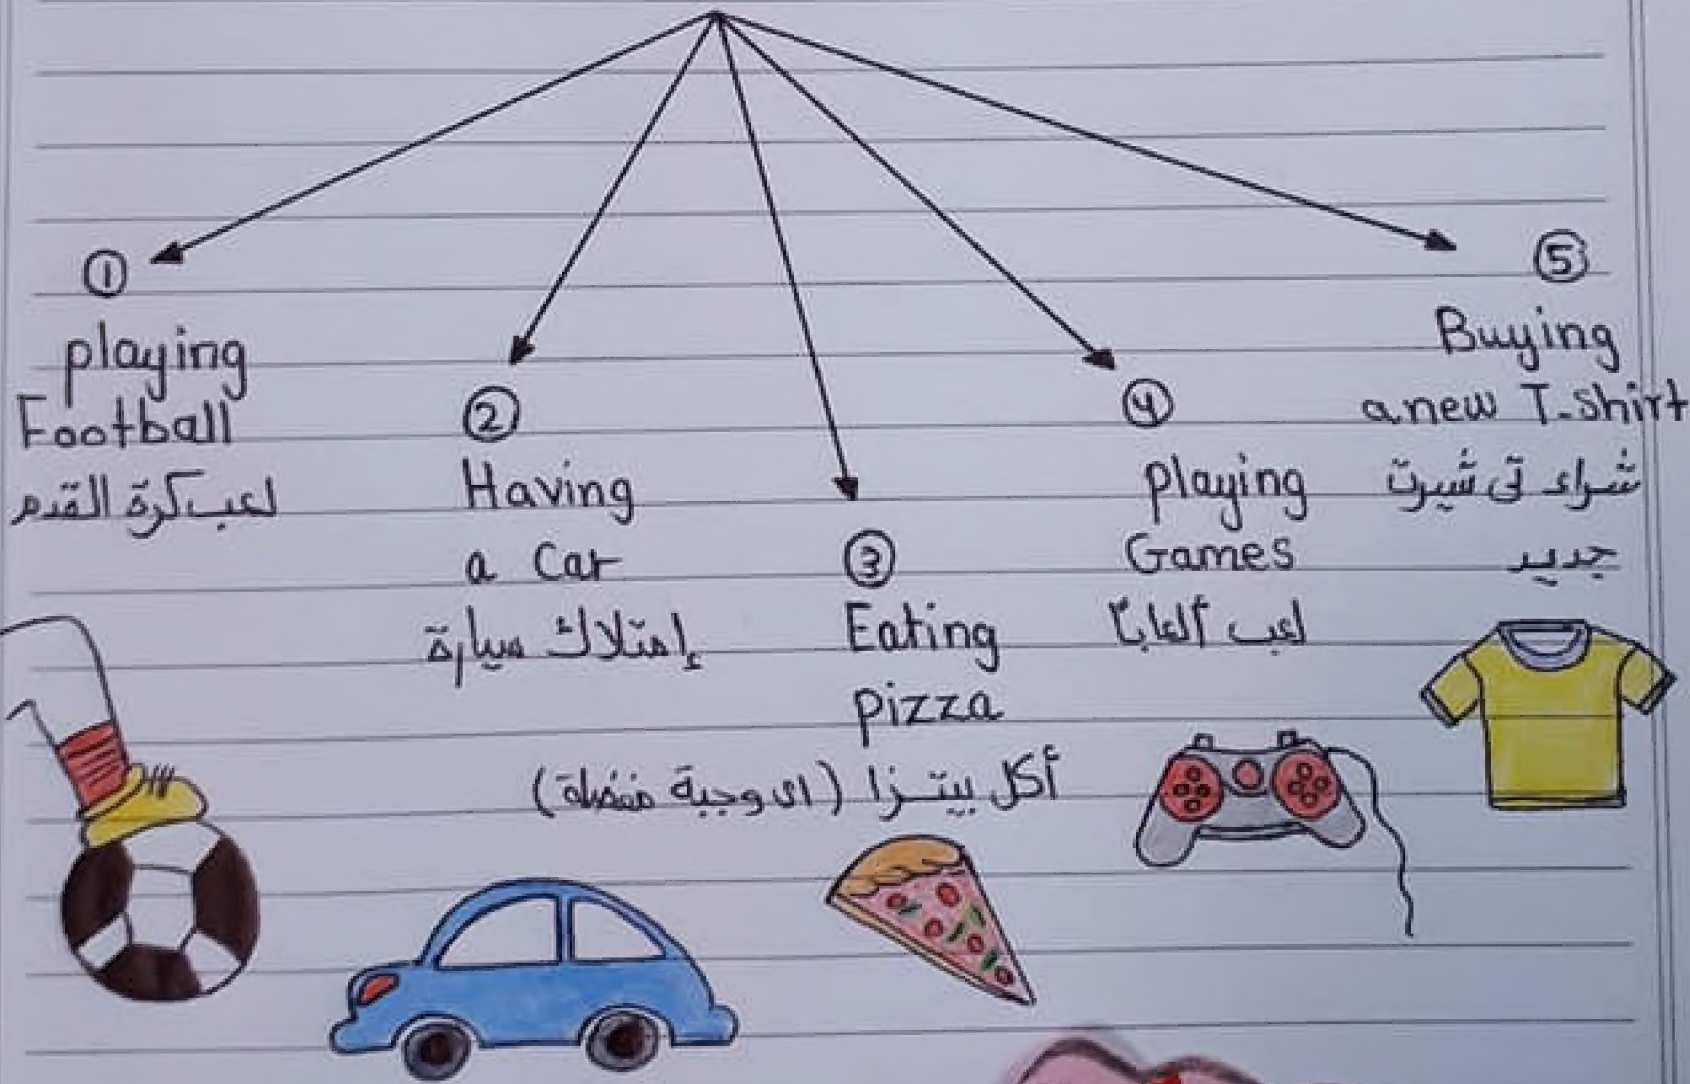 ①
playing
Football
لعب كرة القدم
②
Having
a Car
إمتلاك سيارة
③
Eating
pizza
أكل بيتزا (اى وجبة مفضلة)
④
playing
Games
لعب ألعاباً
⑤
Buying
a new T-shirt
شراء تى شيرت
جديد